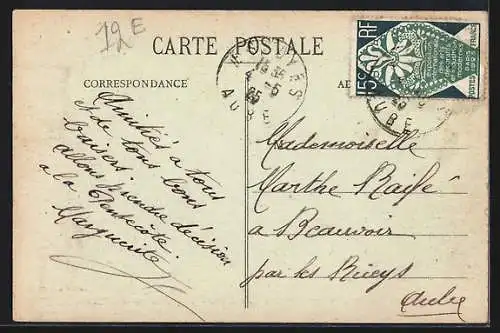 12E
CARTE POSTALE
CORRESPONDANCE
15c RF
POSTES 1925 FRANCE
AUBE
AUBE
Amitiés a tous
& de tous bons
baisers.
allons prendre décision
a la Pentecôte.
Marguerite
Mademoiselle
Marthe
a Beauvoir
par les Riceys
Aube